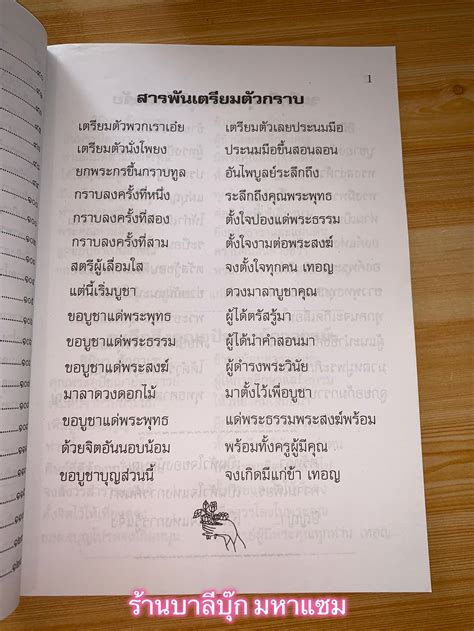 1
สารพันเตรียมตัวกราบ
เตรียมตัวพวกเราเอ๋ย เตรียมตัวเลยประนมมือ
เตรียมตัวนั่งไพยง ประนมมือขึ้นสอนลอน
ยกพระกรขึ้นกราบทูล อันไพบูลย์ระลึกถึง
กราบลงครั้งที่หนึ่ง ระลึกถึงคุณพระพุทธ
กราบลงครั้งที่สอง ตั้งใจปองแด่พระธรรม
กราบลงครั้งที่สาม ตั้งใจงามต่อพระสงฆ์
สตรีผู้เลื่อมใส จงตั้งใจทุกคน เทอญ
แต่นี้เริ่มบูชา ดวงมาลาบูชาคุณ
ขอบูชาแด่พระพุทธ ผู้ได้ตรัสรู้มา
ขอบูชาแด่พระธรรม ผู้ได้นำคำสอนมา
ขอบูชาแด่พระสงฆ์ ผู้ดำรงพระวินัย
มาลาดวงดอกไม้ มาตั้งไว้เพื่อบูชา
ขอบูชาแด่พระพุทธ แด่พระธรรมพระสงฆ์พร้อม
ด้วยจิตอันนอบน้อม พร้อมทั้งครูผู้มีคุณ
ขอบูชาบุญส่วนนี้ จงเกิดมีแก่ข้า เทอญ
ร้านบาลีบุ๊ก มหาแซม